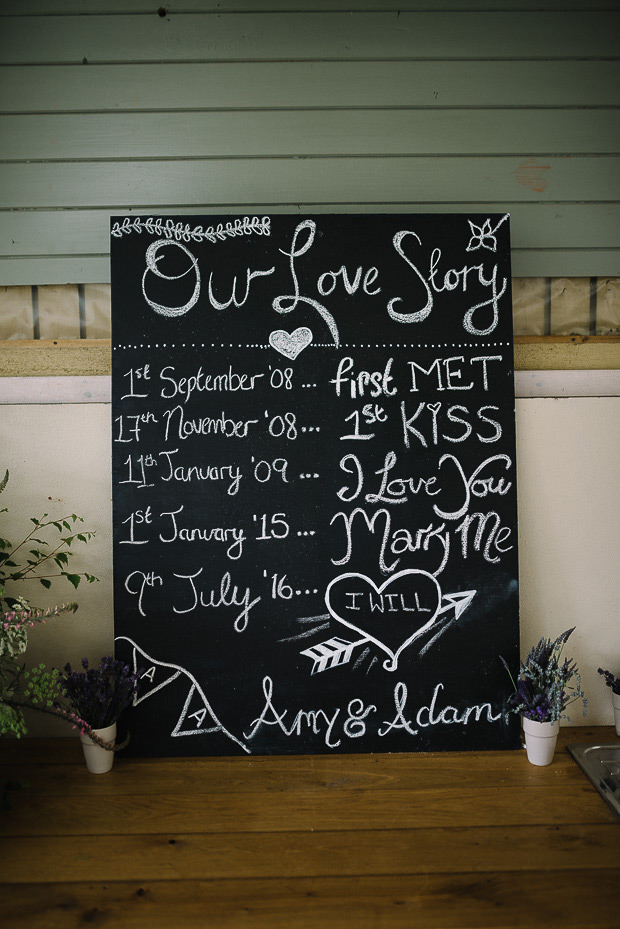 Our Love Story
1st September '08 ... first MET
17th November '08... 1st KISS
11th January '09 ... I Love You
1st January '15 ... Marry Me
9th July '16... I WILL
A
A
Amy & Adam